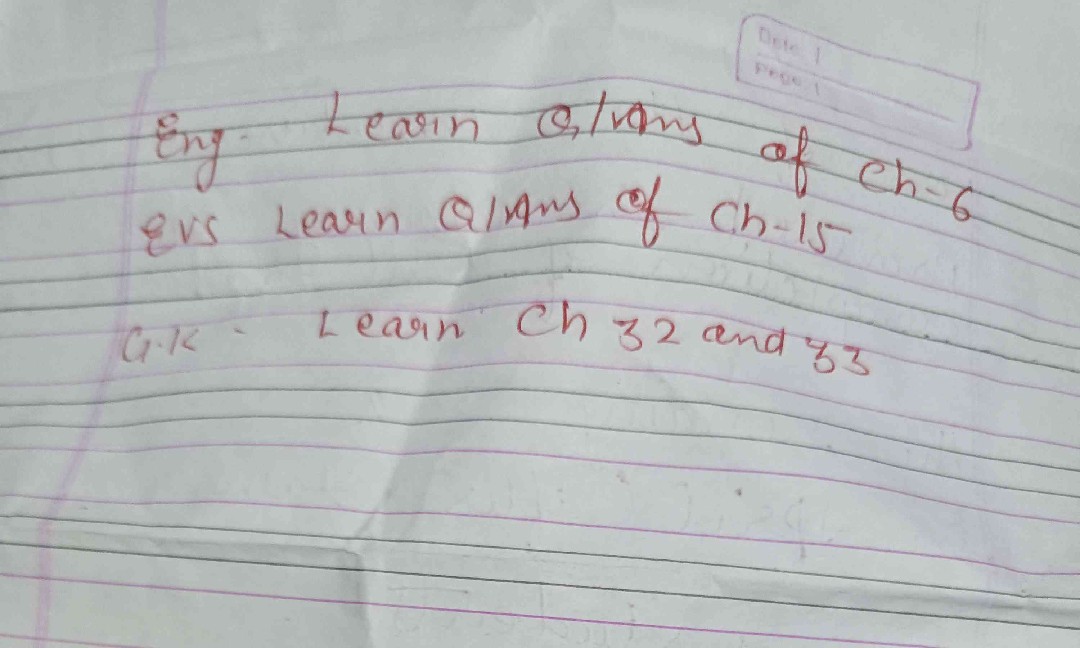 Date 1
Page 1
Eng- Learn Q/Ans of Ch-6
EVS Learn Q/Ans of Ch-15
G.K - Learn Ch 32 and 33